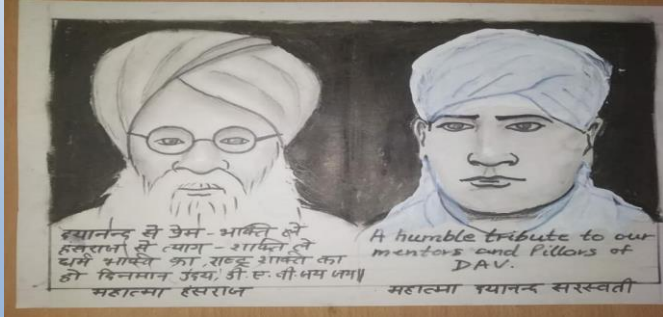 दयानन्द से प्रेम - भक्ति ले
हंसराज से त्याग - शक्ति ले
धर्म भक्ति का राष्ट्र शक्ति का
हो दिनमान उदय, डी. ए. वी जय जय॥
महात्मा हंसराज
A humble tribute to our
mentors and Pillors of
DAV.
महात्मा दयानन्द सरस्वती